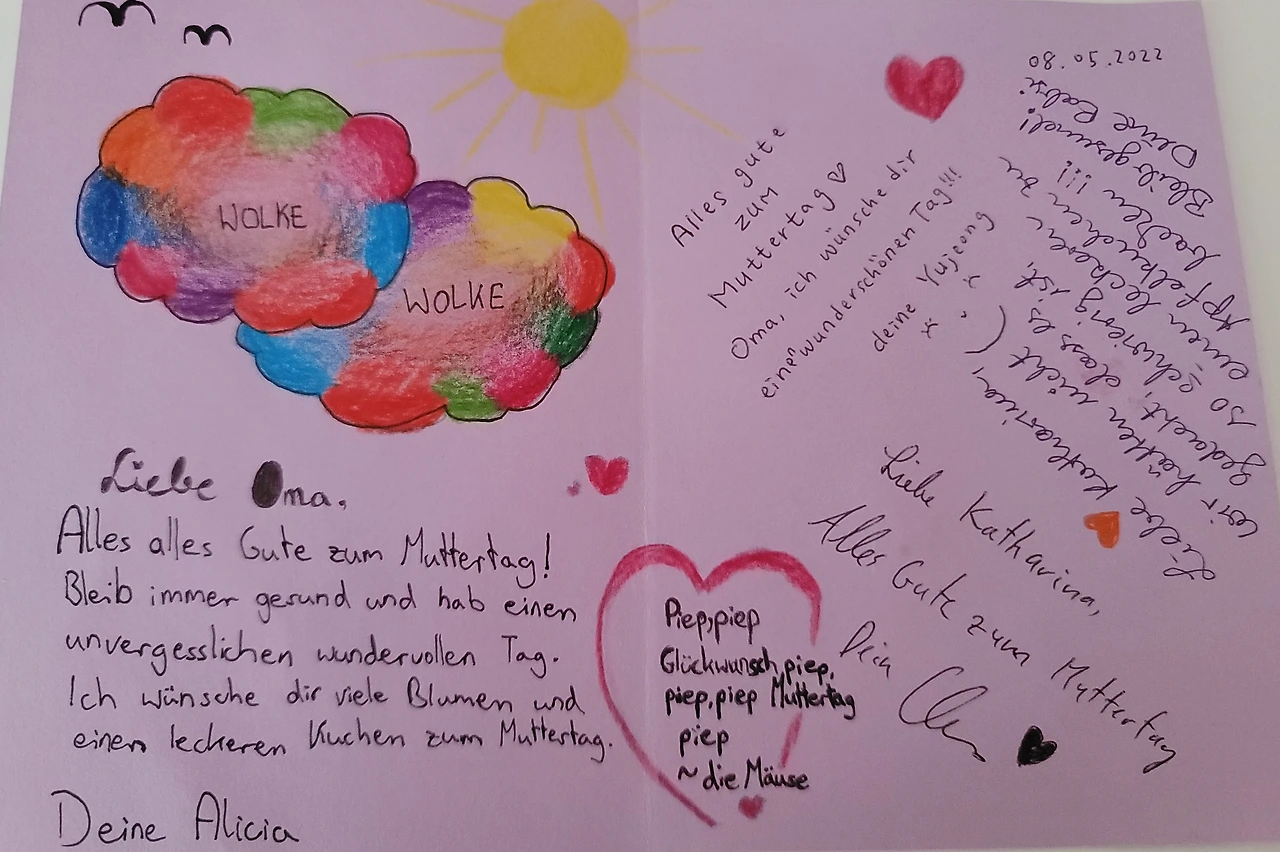 WOLKE
WOLKE
Liebe Oma,
Alles alles Gute zum Muttertag!
Bleib immer gesund und hab einen
unvergesslichen wundervollen Tag.
Ich wünsche dir viele Blumen und
einen leckeren Kuchen zum Muttertag.
Deine Alicia
Piep, piep
Glückwunsch, piep,
piep, piep Muttertag
piep
~ die Mäuse
Alles gute
zum
Muttertag
Oma, ich wünsche dir
einen wunderschönen Tag!!!
deine Yujeong
08.05.2022
Liebe Katharina,
wir hätten nicht
gedacht, dass es
so schwierig ist,
einen leckeren
Apfelkuchen zu
backen !!!
Bleib gesund!
Deine
Liebe Katharina,
Alles Gute zum Muttertag
Dein